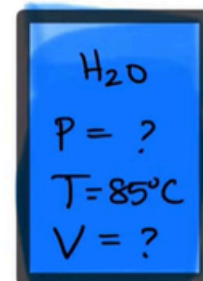 H₂O
P = ?
T = 85°C
V = ?